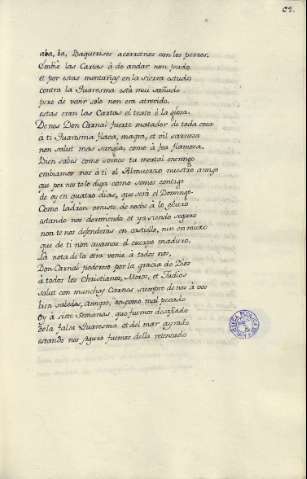 aba, ba, Vaquerisos acorrannos con los perros.
Embie las Cartas à do andar non pudo
et por estas montañas en la sierra estudo
contra la Quaresma está muy sañudo
pero de venir solo non era atrevido.
estas eran las Cartas el texto è la glosa.
De nos Don Carnal fuerte matador de toda cosa
à ti Quaresma flaca, magra, et vil sarnosa
non salut mas sangría, como à foa flemosa.
Bien sabes como somos tu mortal enemigo
embiamos nos à ti el Almuerzo nuestro amigo
que por nos te lo diga como somos contigo
de oy en quatro dias, que será el Domingo.
Como ladron veniste de noche à lo escuro
estando nos dormiendo et yasiendo seguro
non te nos defenderás en castillo, nin en muro
que de ti non ayamos el cuerpo maduro.
La nota de la otra venia à todos nos,
Don Carnal poderoso por la gracia de Dios
à todos los Christianos, Moros, et Judios
salut con muchas Carnes siempre de nos à vos
bien sabedes, amigos, en como, mal pecado
Oy à siete semanas que fuemos desafiado
de la falsa Quaresma et del mar ayrado
estando nos seguro fuemos della